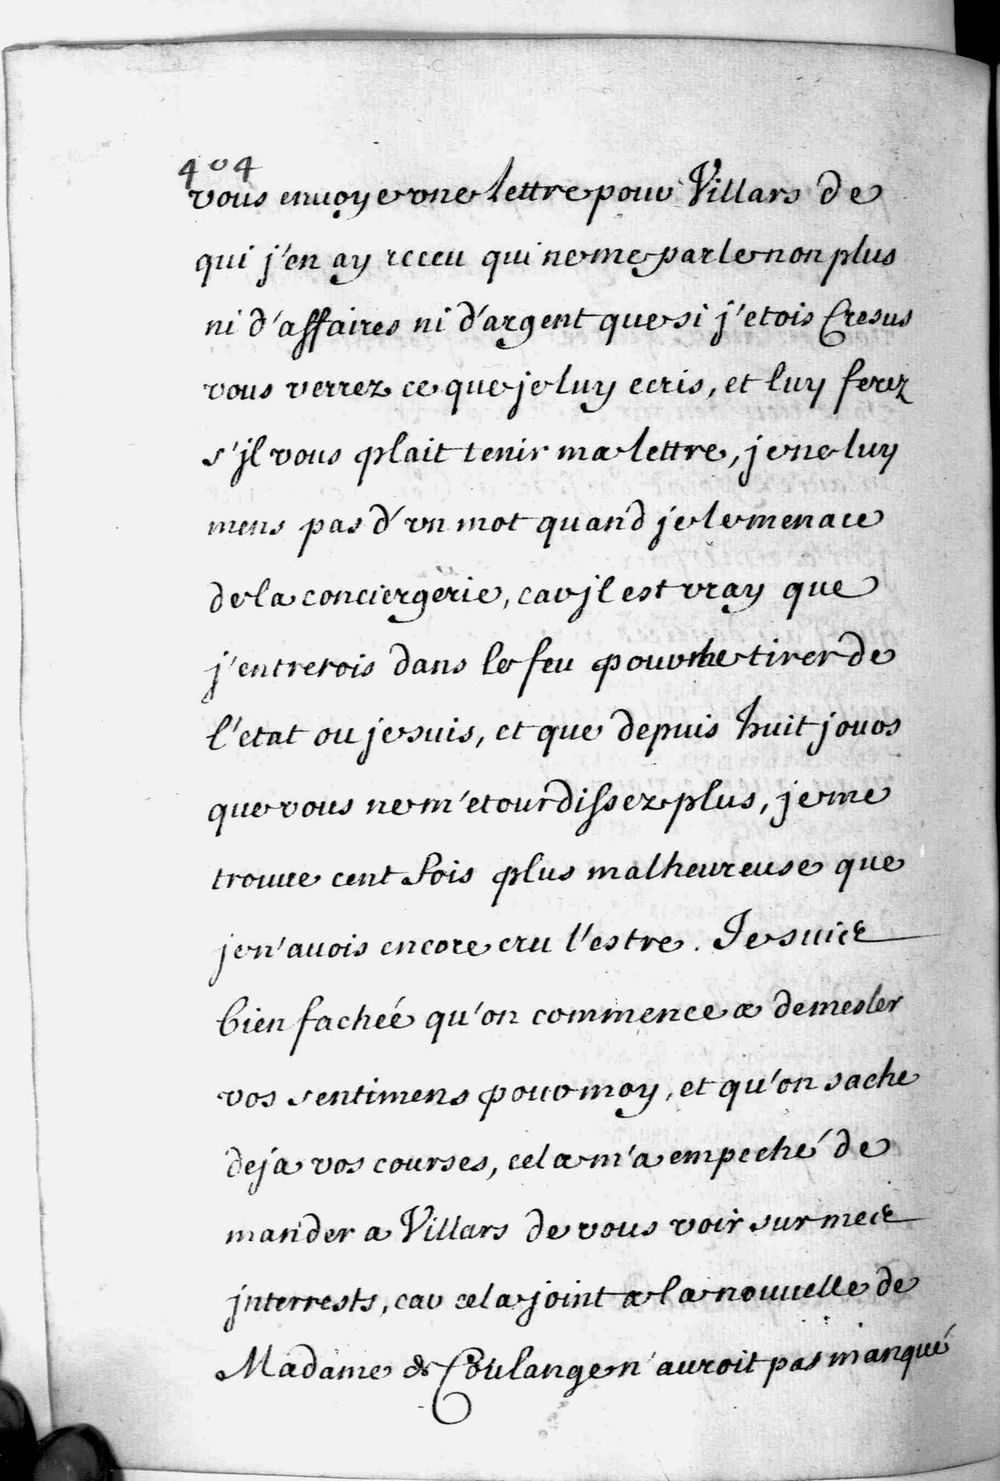 404
vous enuoye vne lettre pour Villars de
qui j'en ay receu qui ne me parle non plus
ni d'affaires ni d'argent que si j'etois Cresus
vous verrez ce que je luy ecris, et luy ferez
s'jl vous plait tenir ma lettre, je ne luy
mens pas d'vn mot quand je le menace
de la conciergerie, car jl est vray que
j'entrerois dans le feu pour me tirer de
l'etat ou je suis, et que depuis huit jours
que vous ne m'etourdissez plus, je me
trouue cent fois plus malheureuse que
je n'auois encore cru l'estre. Je suis
bien fachée qu'on commence a demesler
vos sentimens pour moy, et qu'on sache
deja vos courses, cela m'a empeché de
mander a Villars de vous voir sur mes
jnterrests, car cela joint a la nouuelle de
Madame de Coulange n'auroit pas manqué